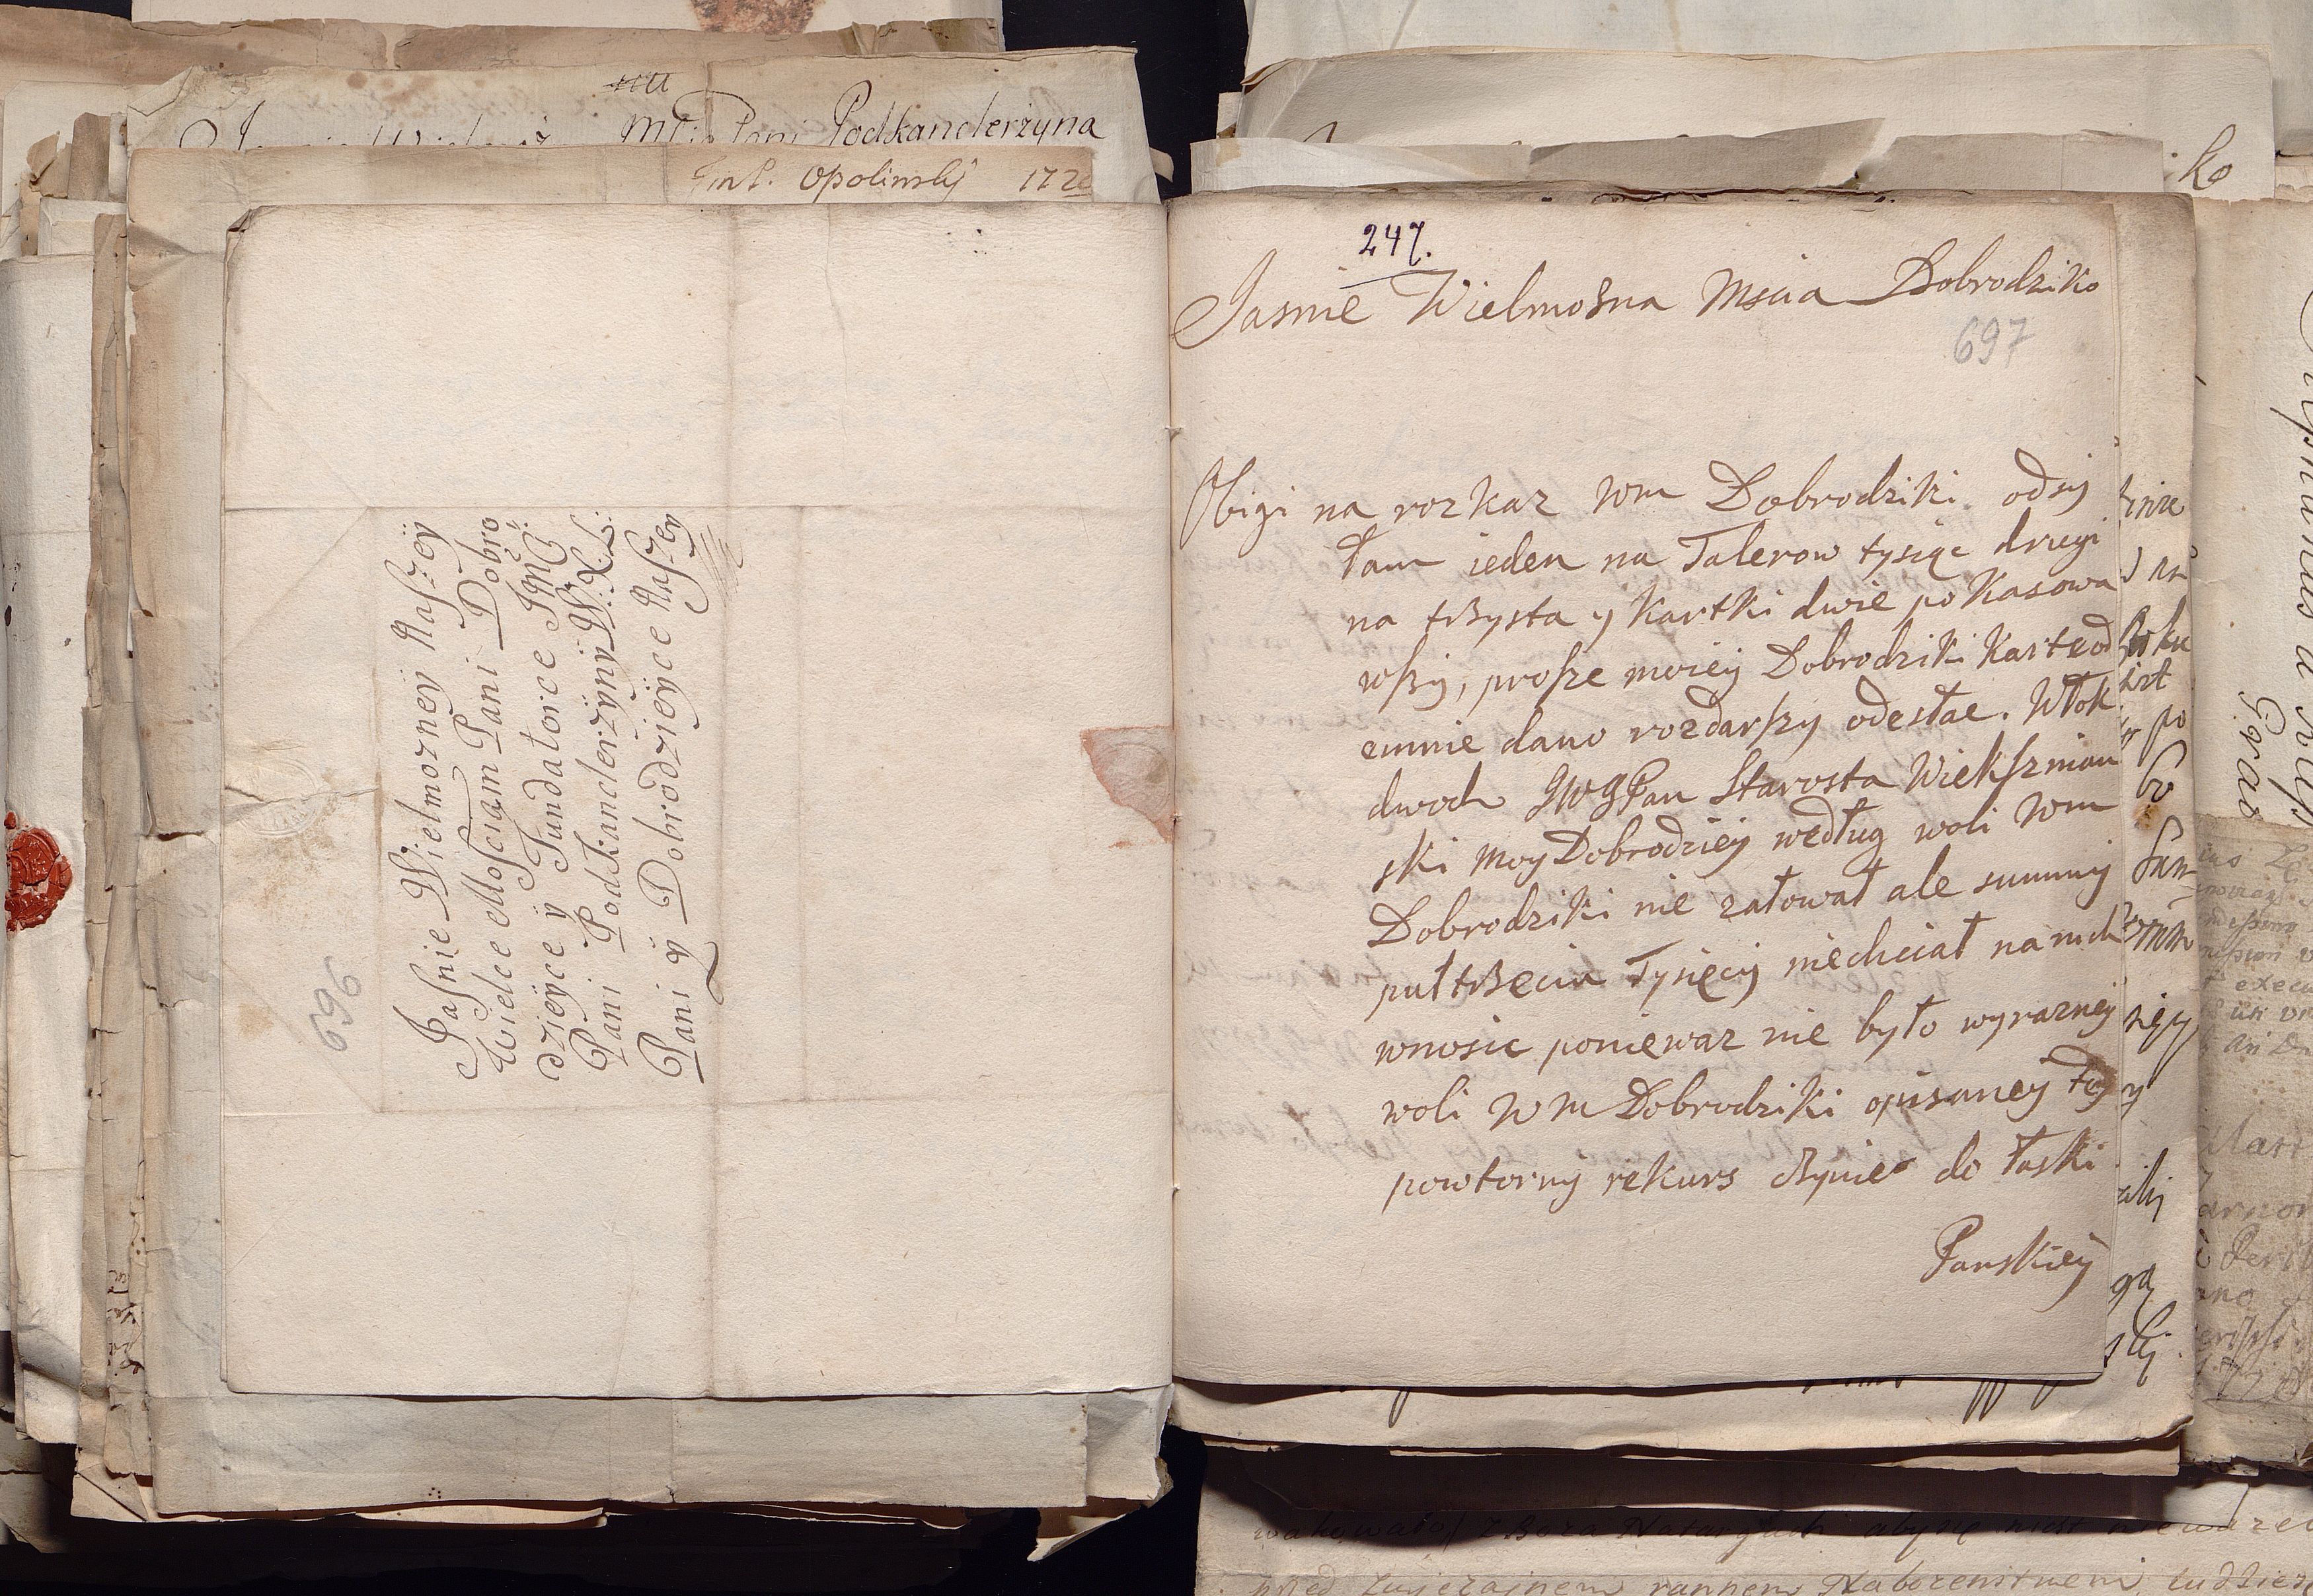 Mścia Pani Podkanclerzyna
Opolinsky 172
696
Jaſnie Wielmozneÿ Naſzeÿ
Wielce Moſciam Pani Dobro
dzieÿce ÿ Fundatorce JmC:
Pani Podkanclerzÿnÿ W.X.L:
Pani ÿ Dobrodzieÿce Naſzeÿ
247.
Jasnie Wielmozna Mscia Dobrodziko
697
Obigi na rozkaz Wm Dobrodziki odsy
łam ieden na Talerow tysiąc drugi
na trzysta y Kartki dwie po Kasowa
wszy, prosze moiey Dobrodziki Karte od
emnie dano rozdarszy odesłac. Wtok
dwoch JWJPan Starosta Wiekszniań
ski moy Dobrodziey według woli Wm
Dobrodziki nie załował ale summy
pułtrzecia Tysięcy niechciał na nich
wnosic poniewaz nie było wyrazney
woli Wm Dobrodziki opisaney tey
powtorny rekurs czynie do łaski
Panskiey
ko
po
bo
przed zwyczajnem rannem Nabozenstwem